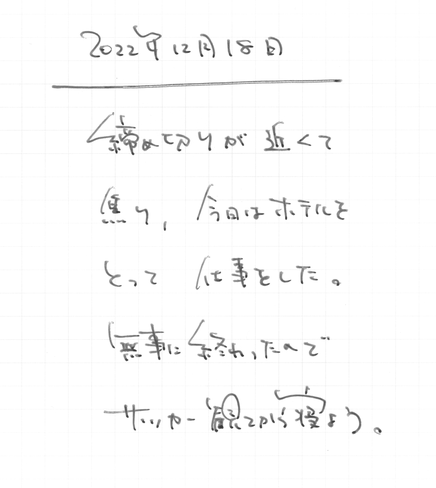 2022年12月18日
締め切りが近くて
焦り、今日はホテルを
とって仕事をした。
無事に終れたので
サッカー観てから寝よう。